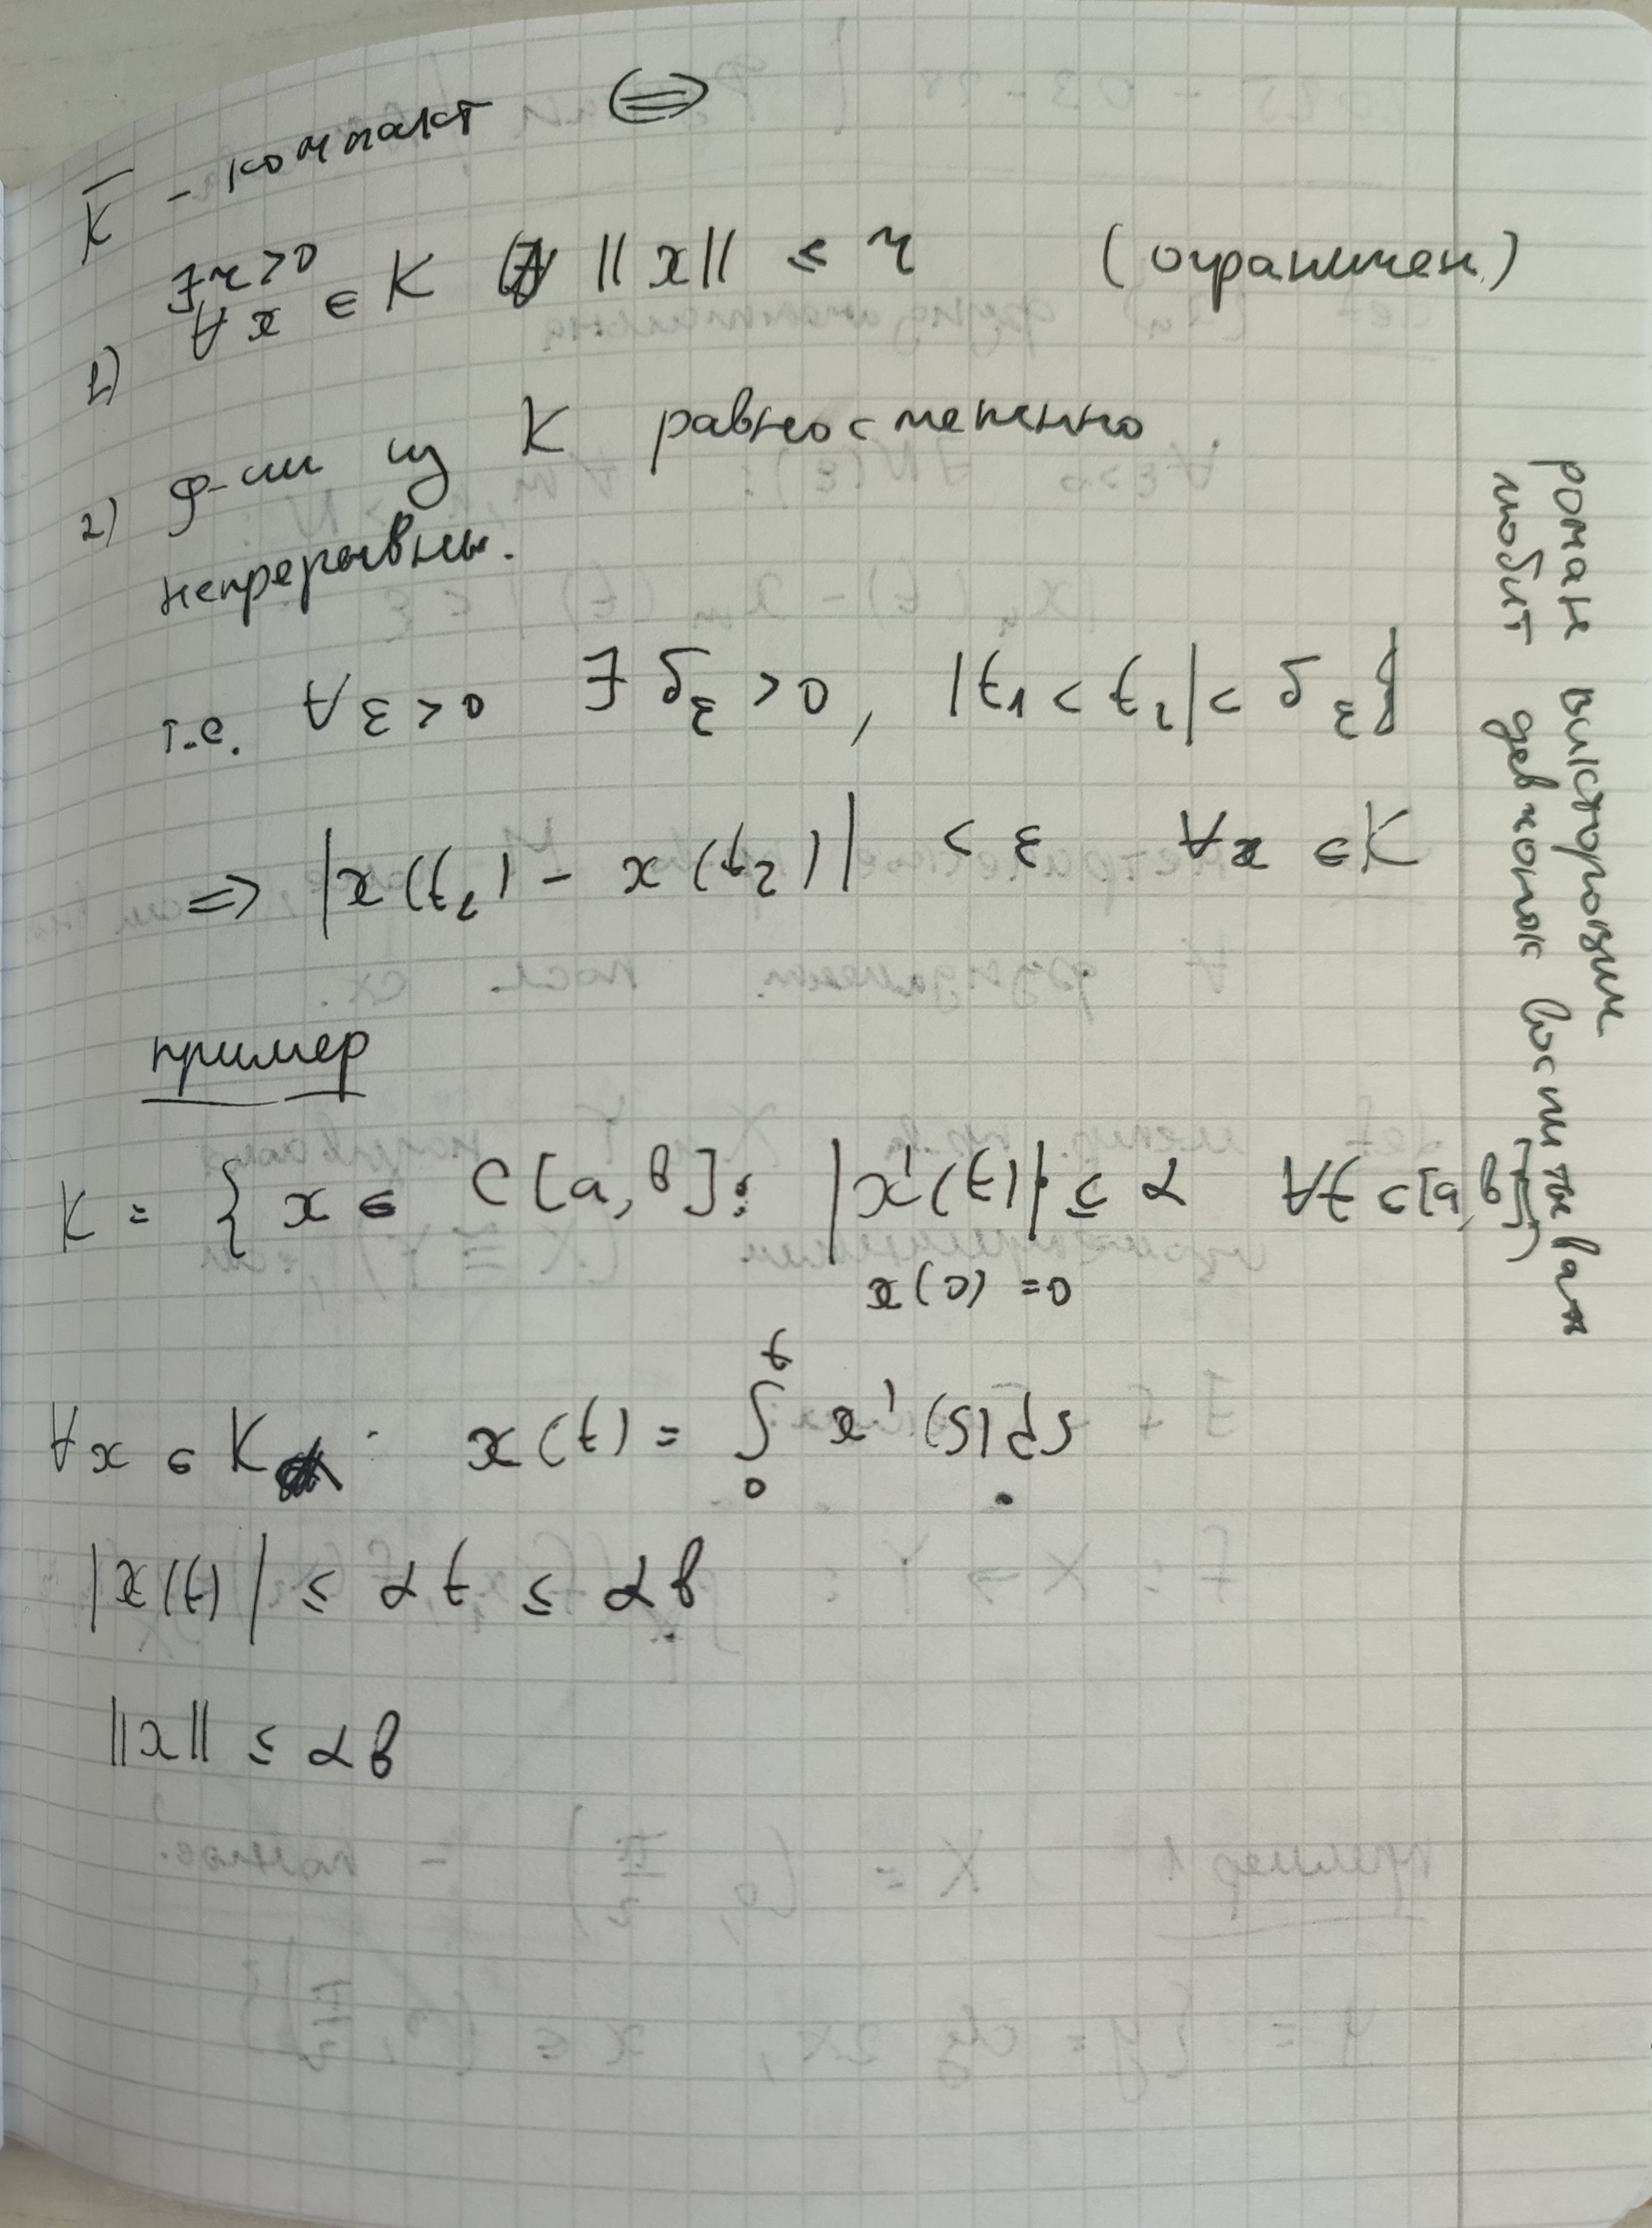 K̅ - компакт ⇔
∃ r > 0
1) ∀x ∈ K ||x|| ≤ r (ограничен.)
2) ф-ии из K равностепенно
непрерывны.
т.е. ∀ε > 0 ∃ δ_ε > 0, |t₁ < t₂| < δ_ε
⇒ |x(t₂) - x(t₂)| < ε ∀x ∈ K
пример
K = { x ∈ C[a, b]: |x'(t)| ≤ α ∀t ∈ [a, b]
x(0) = 0
∀x ∈ K: x(t) = ∫₀ᵗ x'(s) ds
|x(t)| ≤ αt ≤ αb
||x|| ≤ αb
роман викторович
любит девчонок воспитывать